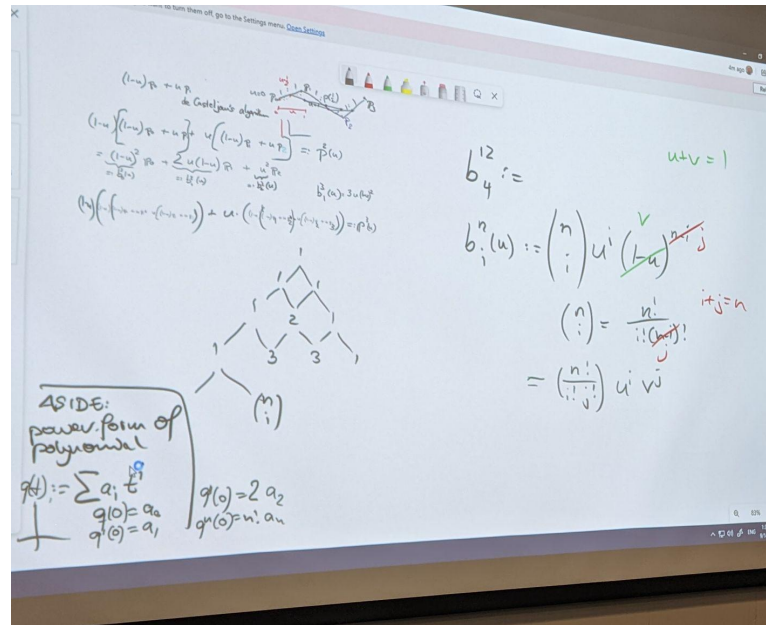 to turn them off, go to the Settings menu. Open Settings
4m ago
(1-u) p₀ + u p₁
de Casteljau's algorithm
(1-u)[(1-u) p₀ + u p₁] + u[(1-u) p₁ + u p₂] =: p²(u)
= (1-u)² p₀ + 2u(1-u) p₁ + u² p₂
b₁³(u) = 3u(1-u)²
1
1 1
1 2 1
1 3 3 1
(n i)
ASIDE:
power form of
polynomial
q(t) := ∑ aᵢ tⁱ
q(0) = a₀
q'(0) = a₁
q''(0) = 2 a₂
qⁿ(0) = n! aₙ
b₄¹² :=
u+v = 1
bᵢⁿ(u) := (n i) uⁱ (1-u)ⁿ⁻ⁱ
v
j
(n i) = n! / i!(n-i)!
j
i+j=n
= (n! / i! j!) uⁱ vʲ
83%
ENG